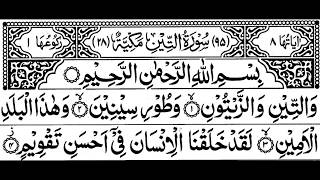 اٰیَاتُهَا ٨ (٩٥) سُوْرَةُ التِّيْنِ مَكِّيَّةٌ (٢٨) رُكُوْعُهَا ١
بِسْمِ اللّٰهِ الرَّحْمٰنِ الرَّحِيْمِ
وَالتِّيْنِ وَالزَّيْتُوْنِ ۝١ وَطُوْرِ سِيْنِيْنَ ۝٢ وَهٰذَا الْبَلَدِ
الْاَمِيْنِ ۝٣ لَقَدْ خَلَقْنَا الْاِنْسَانَ فِىْۤ اَحْسَنِ تَقْوِيْمٍ ۝٤